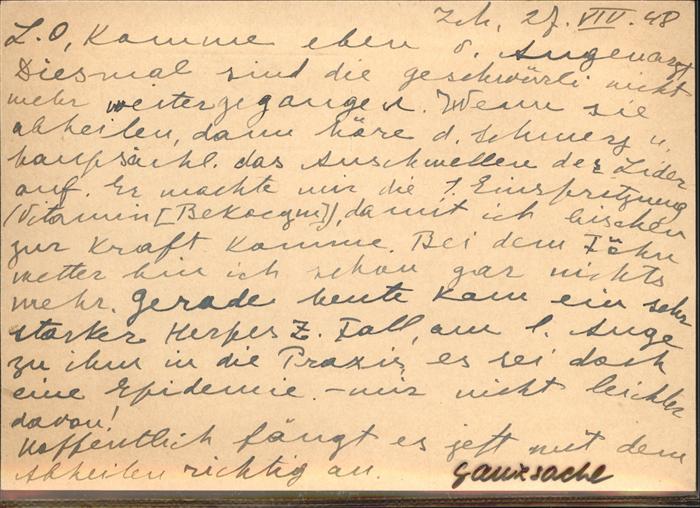 Zch, 27. VIII. 48
L. O, Komme eben v. Augenarzt
Diesmal sind die geschwürli nicht
mehr weitergegangen. Wenn sie
abheilen, dann höre d. Schmerz u.
haupsächl. das Anschwellen der Lider
auf. Er machte mir die 1. Einspritzung
(Vitamin [Bekozym]), damit ich bischen
zur Kraft komme. Bei dem Föhn
wetter bin ich schon gar nichts
mehr. Gerade heute kam ein sehr
starker Herpes Z. Fall, am l. Auge
zu ihm in die Praxis, es sei doch
eine Epidemie. - mir nicht leichter
davon!
Hoffentlich fängt es jetzt mit dem
Abheilen richtig an.